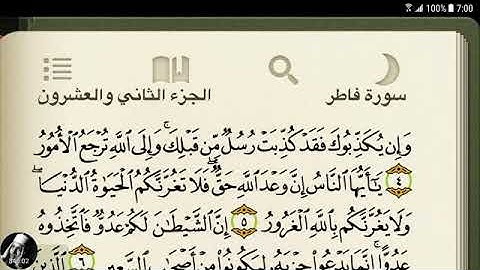 100% 7:00
سورة فاطر الجزء الثاني والعشرون
وَإِن يُكَذِّبُوكَ فَقَدْ كُذِّبَتْ رُسُلٌ مِّن قَبْلِكَ ۚ وَإِلَى اللَّهِ تُرْجَعُ الْأُمُورُ
٤ يَا أَيُّهَا النَّاسُ إِنَّ وَعْدَ اللَّهِ حَقٌّ ۖ فَلَا تَغُرَّنَّكُمُ الْحَيَاةُ الدُّنْيَا ۖ
وَلَا يَغُرَّنَّكُم بِاللَّهِ الْغَرُورُ ٥ إِنَّ الشَّيْطَانَ لَكُمْ عَدُوٌّ فَاتَّخِذُوهُ
عَدُوًّا ۚ إِنَّمَا يَدْعُو حِزْبَهُ لِيَكُونُوا مِنْ أَصْحَابِ السَّعِيرِ ٦ الَّذِينَ